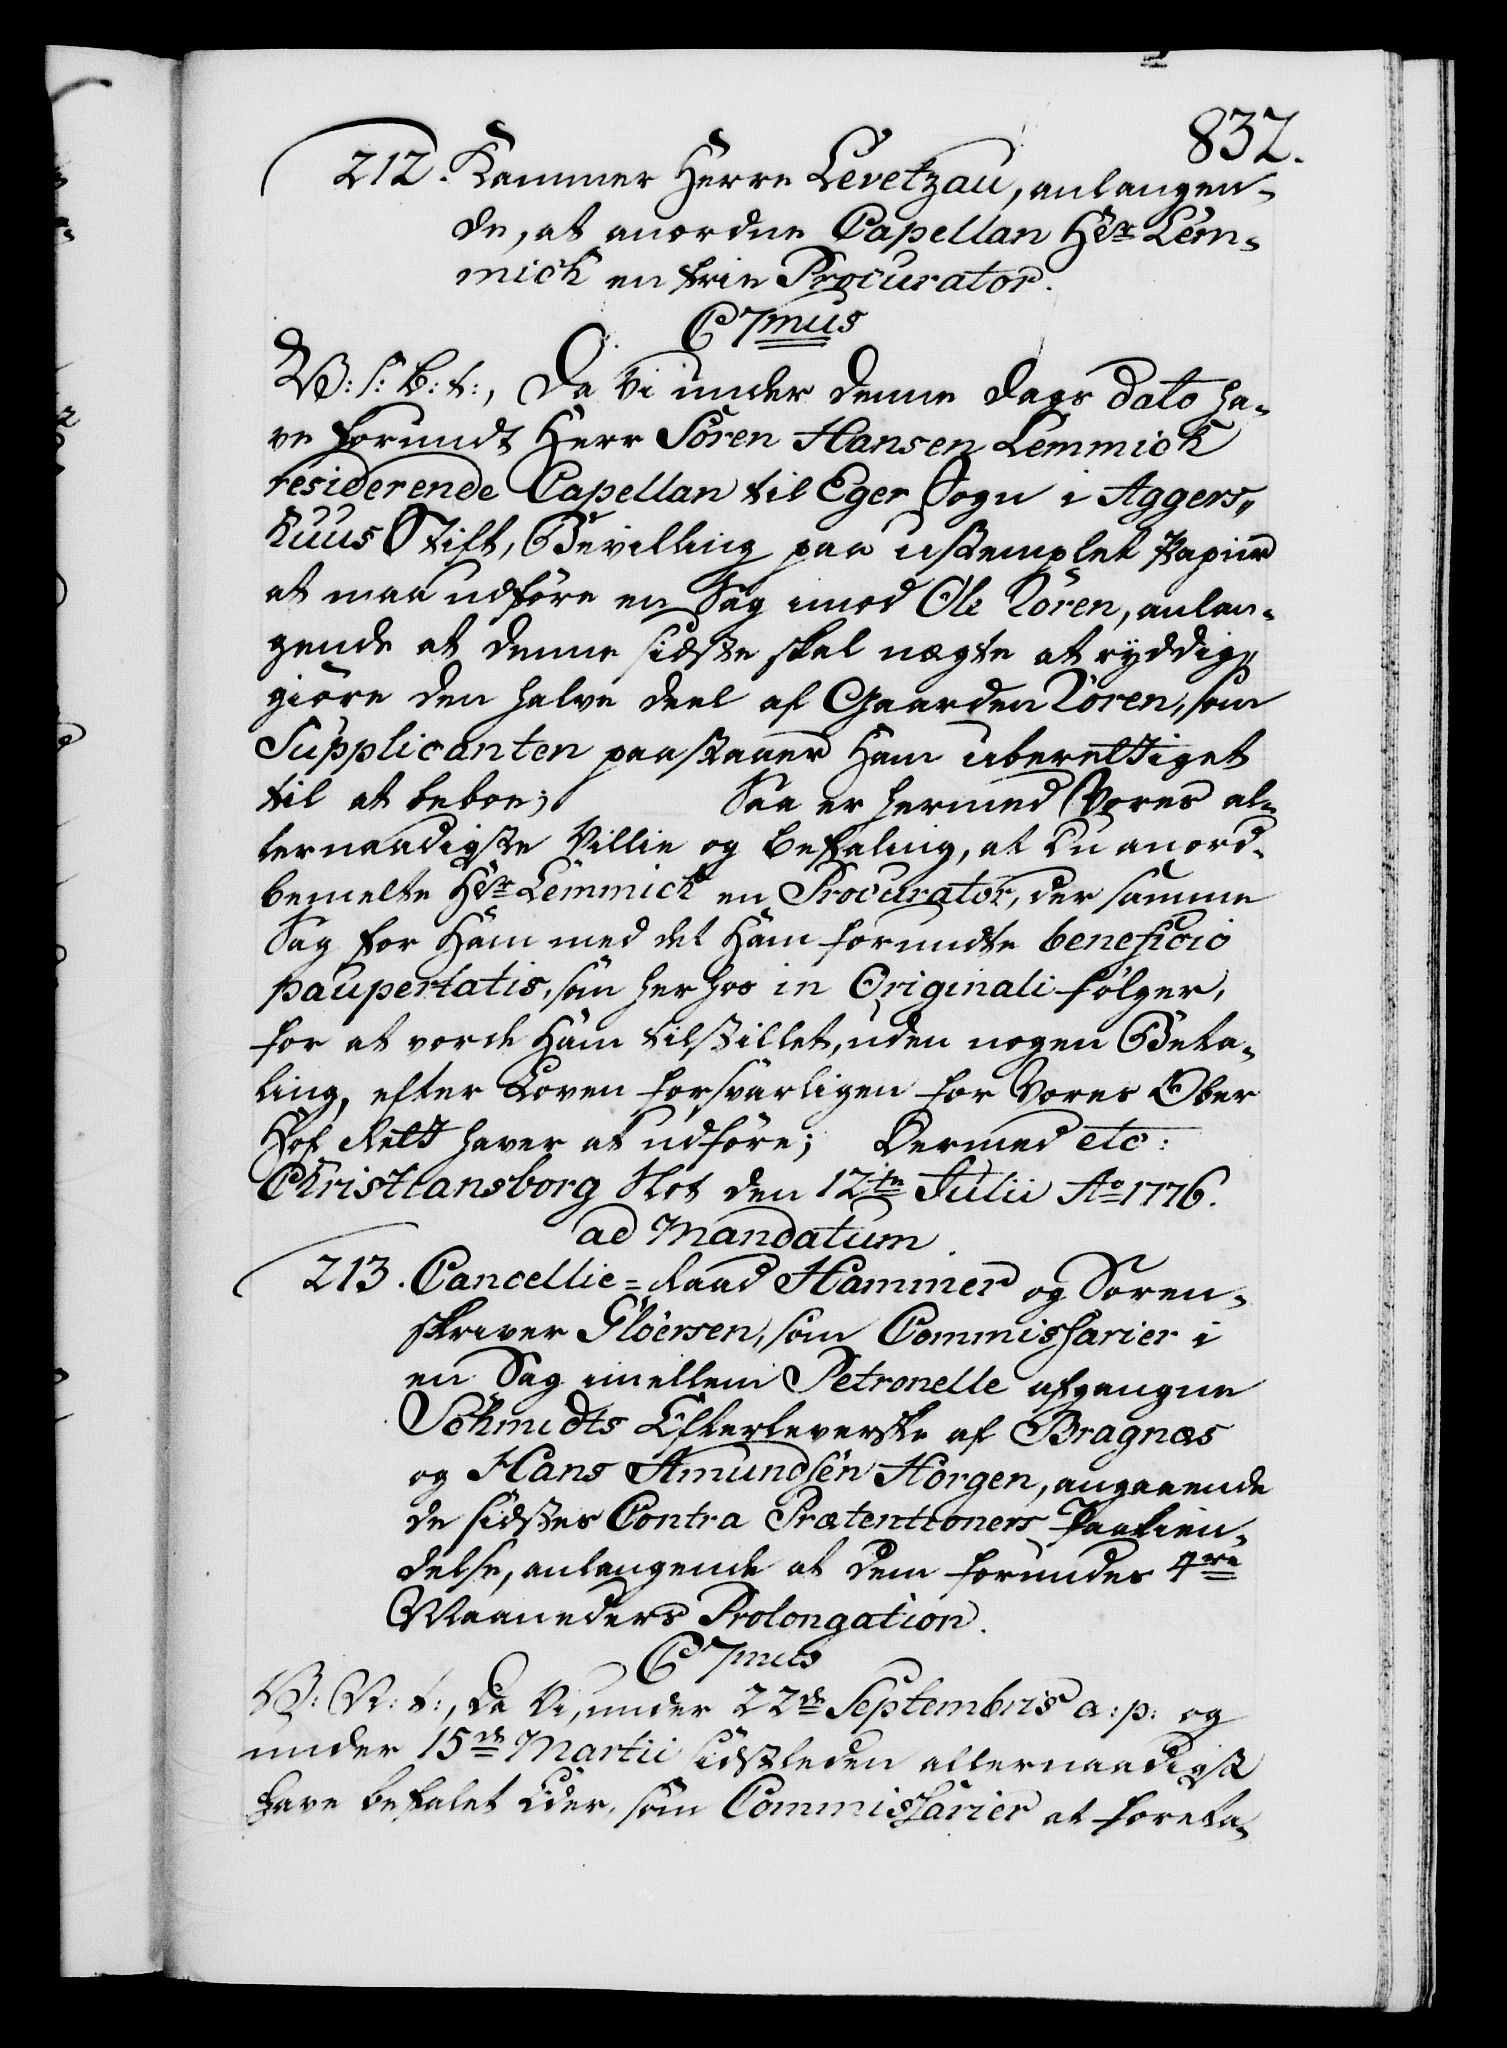 832.
212. Kammer Herre Levetzau, anlangen-
de, at anordne Capellan Hr Lem-
mich en frie Procurator.
C7mus
V: S: B: t:, Da Vi under denne Dags Dato ha-
ve forundt Herr Sören Hansen Lemmich
residerende Capellan til Eger Sogn i Aggers-
huus Stift, Bevilling paa ustemplet Papiir
at maa udföre en Sag imod Ole Rören, anlan-
gende at denne sidste skal nægte at ryddig-
giöre den halve Deel af Gaarden Rören, som
Supplicanten paastaaer Ham uberettiget
til at beboe; Saa er hermed Vores al-
lernaadigste Villie og Befaling, at Du anord-
bemelte Hr Lemmich en Procurator, der samme
Sag for Ham med det Ham forundte beneficio
paupertatis, som herhos in Originali fölger,
for at vorde Ham tilstillet, uden nogen Beta-
ling, efter Loven forsvarligen for Vores Ober
Hof Rett haver at udföre; Dermed etc:
Christiansborg Slot den 12te Julii Ao 1776.
ad Mandatum.
213. Cancellie-Raad Hammer og Soren-
skriver Glöersen, som Commissarier i
en Sag imellem Petronelle afgangne
Schmidts Efterleverske af Bragnæs
og Hans Amundsen Horgen, angaaende
de sidstes Contra Prætentioners Paakien-
delse, anlangende at dem forundes 4re
Maaneders Prolongation.
C7mus
V: V: t:, Da Vi, under 22de Septembris a: p: og
under 15de Martii sidstleden allernaadigst
have befalet Eder, som Commissarier at foreta-